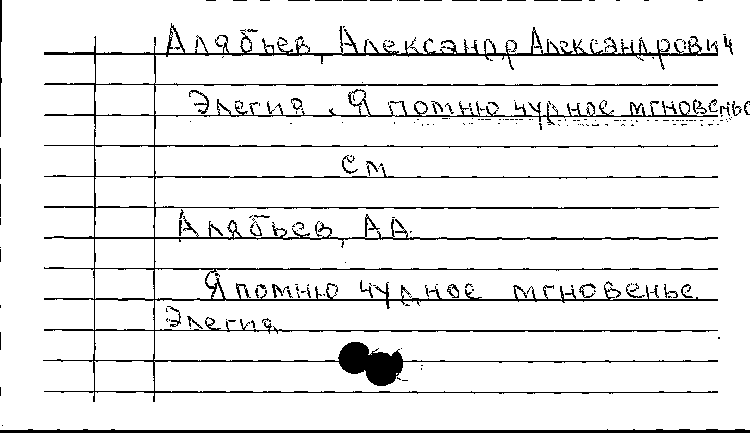 Алябьев, Александр Александрович
Элегия. Я помню чудное мгновенье
см
Алябьев, А А.
Я помню чудное мгновенье.
Элегия